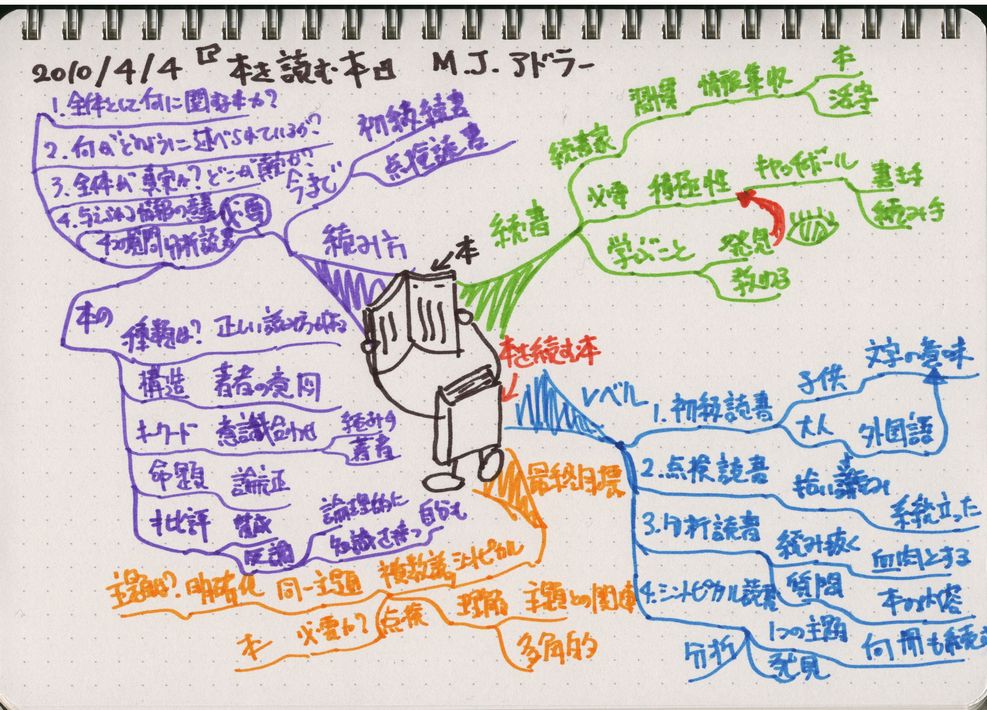 2010/4/4 『本を読む本』 M.J.アドラー
1.全体として何に関する本か?
2.何がどのように述べられているか?
3.全体が真実か?どこが真実か?
4.
4つの質問 分析読書
今まで
初級読書
点検読書
読み方
本の
種類は? 正しい
構造 著者の意図
キーワード 意識合わせ
読み手
著者
命題 論証
批評 賛成
反論
論理的に
知識を持つ
自分も
本
本を読む本
読書
読書家
習慣 情報集収
本
活字
必要 積極性
キャッチボール
書き手
読み手
学ぶこと 発見
教わる
レベル
1.初級読書
子供 文字の意味
大人 外国語
2.点検読書
拾い読み
系統立った
3.分析読書
読み抜く
血肉とする
質問
本の内容
4.シントピカル読書
1つの主題
何冊も読む
分析
発見
最終目標
シントピカル
複数読
同一主題
明確化
主題は?
点検
必要か?
本
理解 主題との関連
多角的